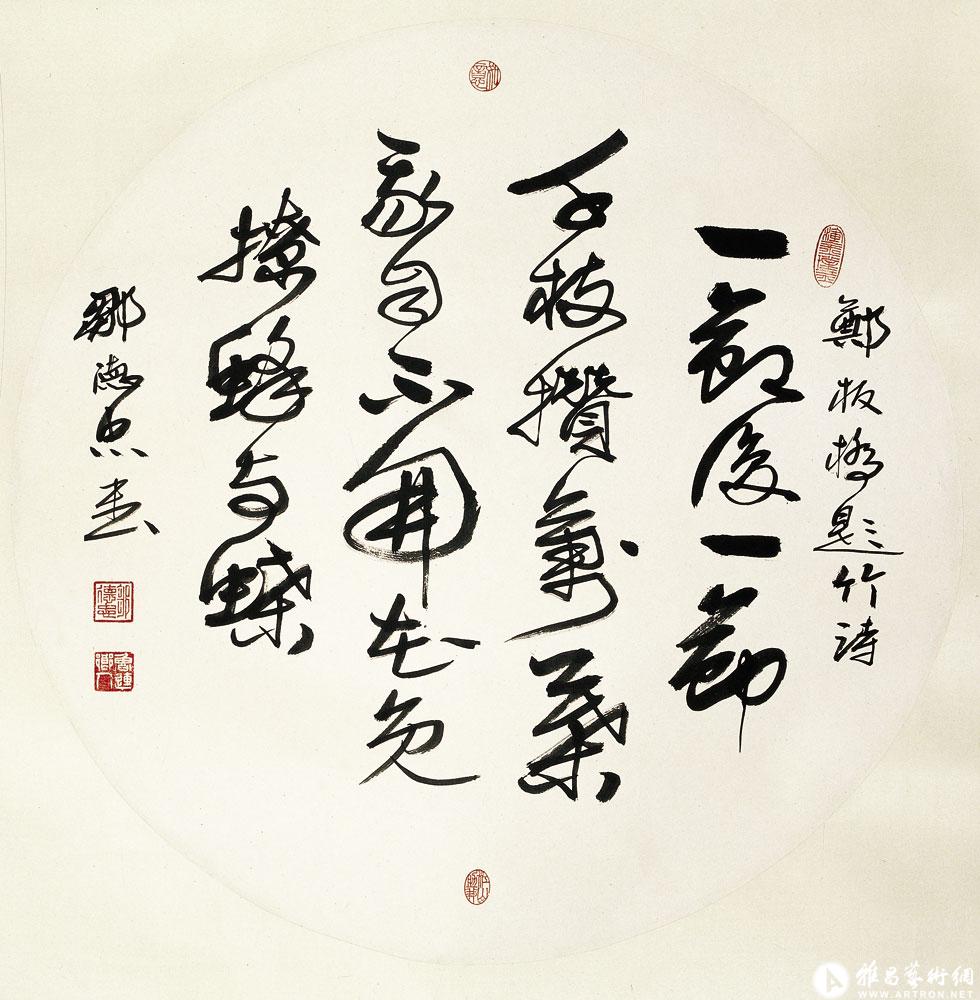 鄭板橋題竹詩
一節復一節
千枝攢萬葉
我自不開花免
撩蜂与蝶
鄒德忠書
雅昌藝術網
WWW.ARTRON.NET